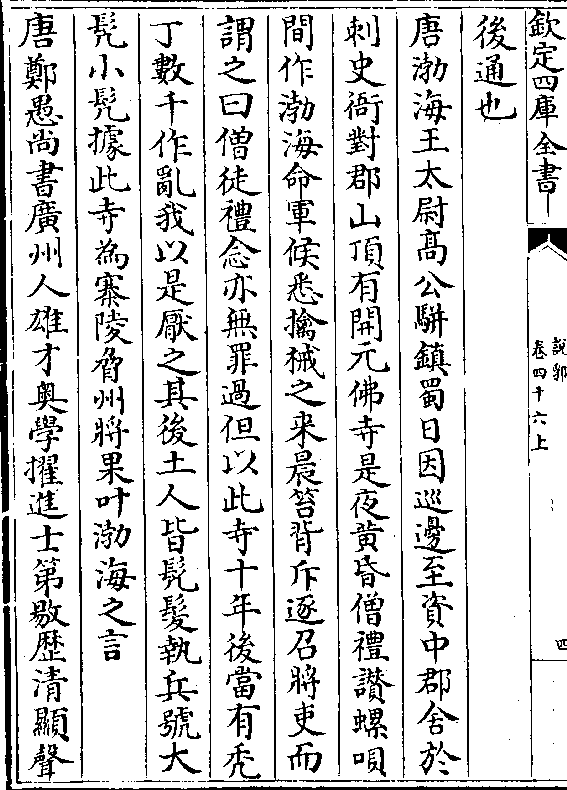 欽定四庫全書
說郛
卷四十六上
四
後通也
唐渤海王太尉髙公駢鎮蜀日因巡邊至資中郡舍於
刺史衙對郡山頂有開元佛寺是夜黄昏僧禮讃螺唄
間作渤海命軍候悉擒械之来晨笞背斥逐召將吏而
謂之曰僧徒禮念亦無罪過但以此寺十年後當有秃
丁數千作亂我以是厭之其後土人皆髠髮執兵號大
髠小髠據此寺為寨陵脅州將果叶渤海之言
唐鄭愚尚書廣州人雄才奥學擢進士第敭歴清顯聲